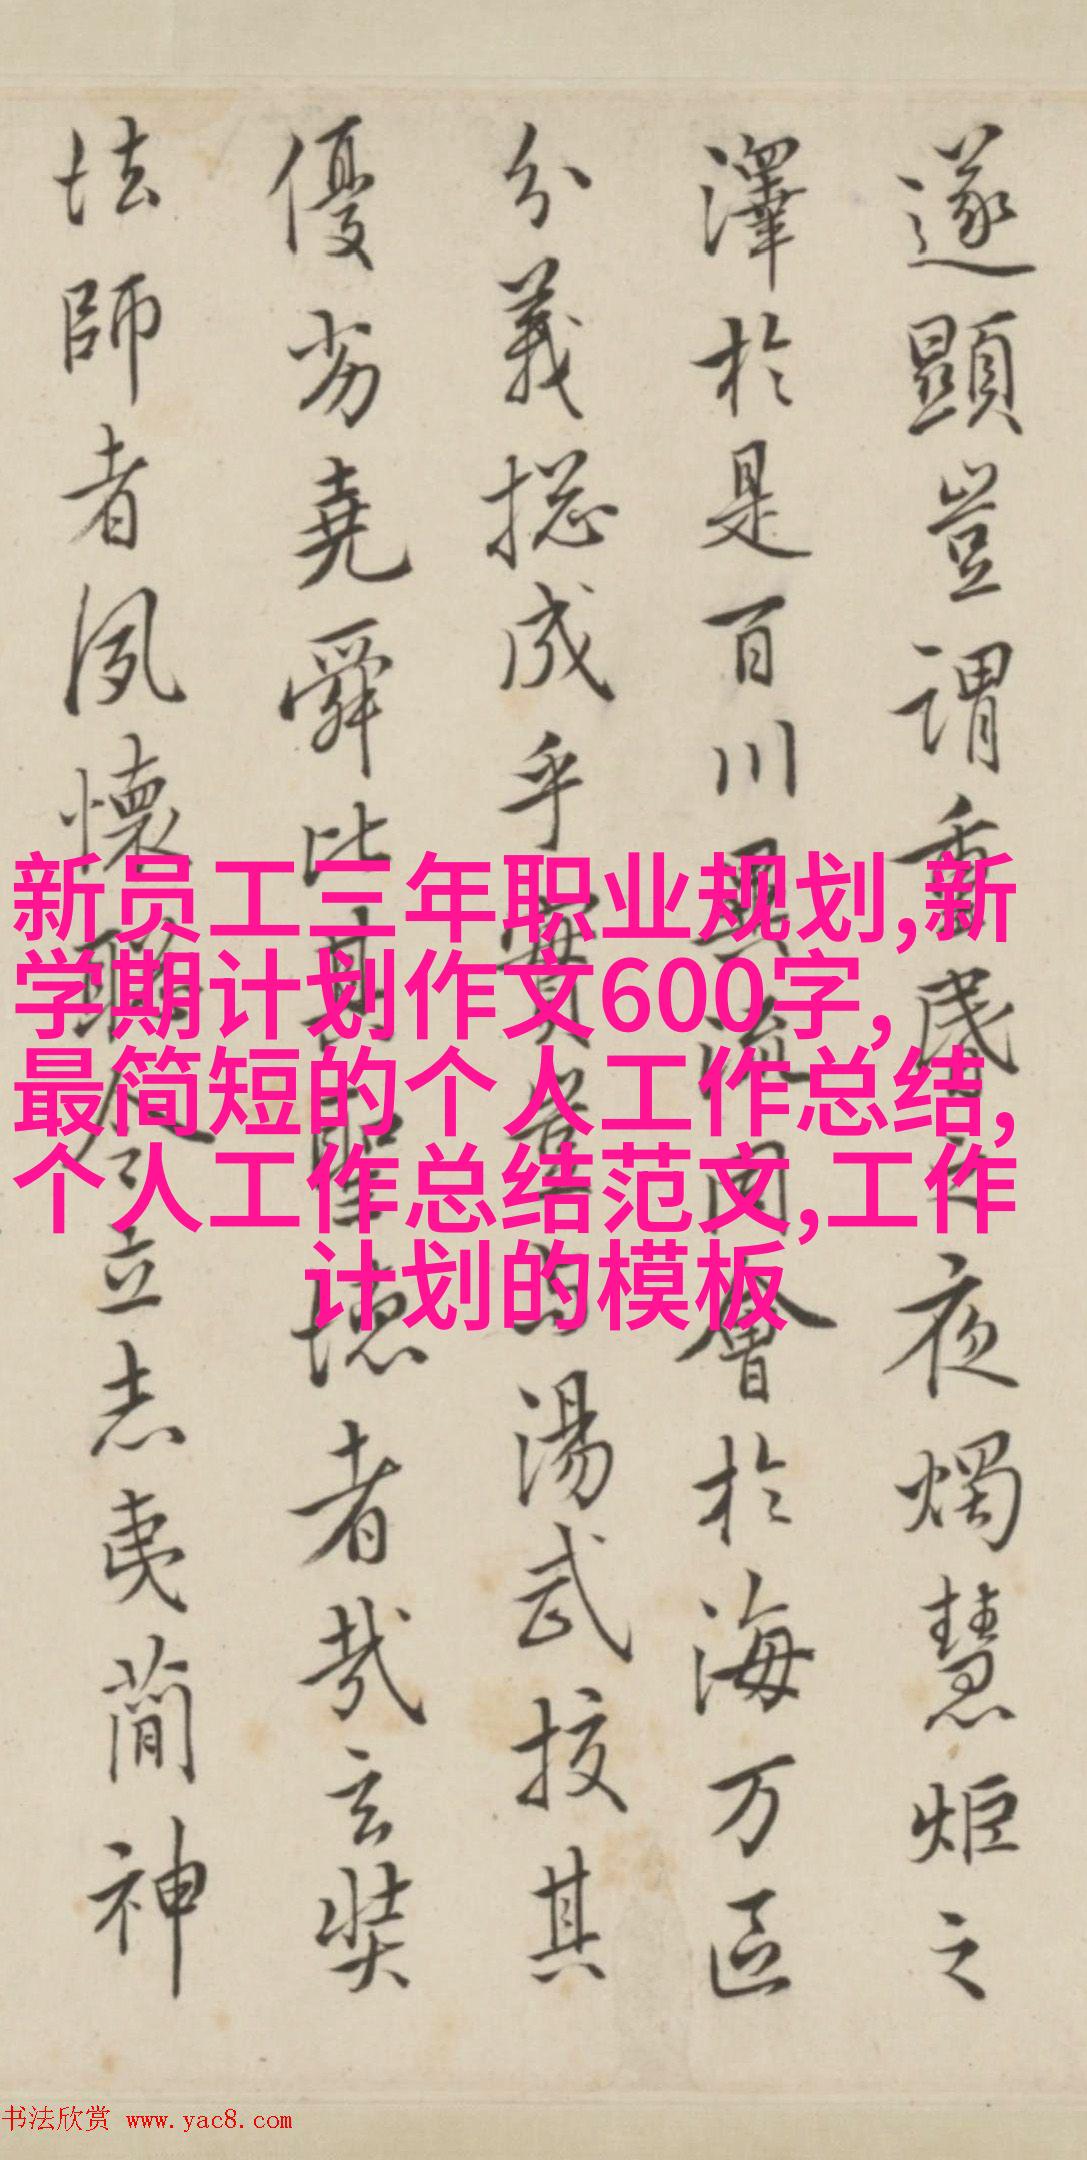 遂顯豈謂重昬之夜燭慧炬之
澤於是百川異流同會於海万區
分義揔成乎實豈与湯武挍其
優劣堯舜比其聖德者哉玄奘
法師者夙懷聰令立志夷簡神
新员工三年职业规划,新
学期计划作文600字,
最简短的个人工作总结,
个人工作总结范文,工作
计划的模板
书法欣赏 www.yac8.com